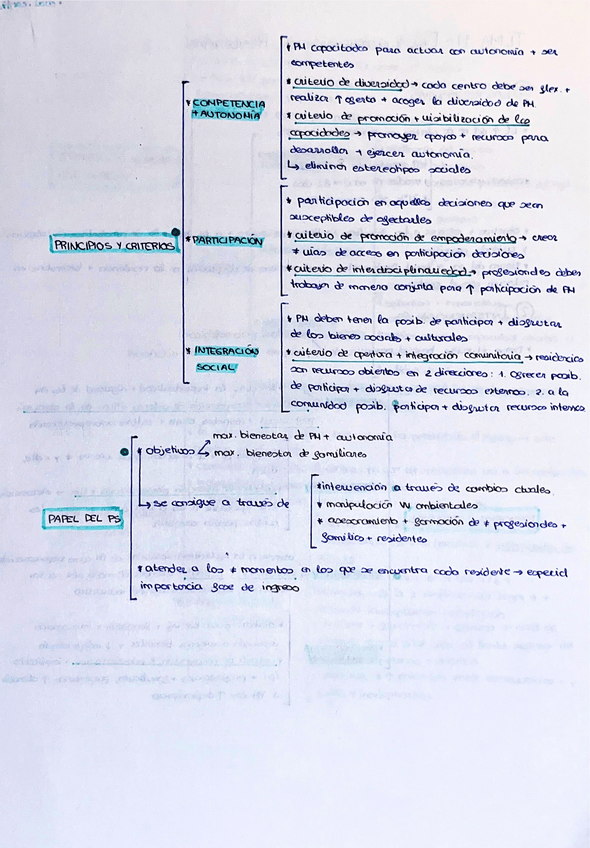 * PM capacitados para actuar con autonomía + ser
competentes
* criterio de diversidad → cada centro debe ser flex. +
realizar ↑ oferta + acoger la diversidad de PM.
COMPETENCIA
+ AUTONOMÍA
* criterio de promoción + visibilización de las
capacidades → promover apoyos + recursos para
desarrollar + ejercer autonomía.
↳ eliminar estereotipos sociales
* participación en aquellas decisiones que sean
susceptibles de afectarles
PRINCIPIOS Y CRITERIOS
* PARTICIPACIÓN
* criterio de promoción de empoderamiento → crear
≠ vías de acceso en participación decisiones
* criterio de interdisciplinariedad → profesionales deben
trabajar de manera conjunta para ↑ participación de PM
* PM deben tener la posib. de participar + disfrutar
de los bienes sociales + culturales
* INTEGRACIÓN
SOCIAL
* criterio de apertura + integración comunitaria → residencias
son recursos abiertos en 2 direcciones: 1. ofrecer posib.
de participar + disfruta de recursos externos. 2. a la
comunidad posib. participar + disfrutar recursos internos
max. bienestar de PM + autonomía
* objetivos
max. bienestar de familiares
* intervención a través de cambios ctuales.
↳ se consigue a través de
* manipulación VV ambientales
PAPEL DEL PS
* asesoramiento + formación de ≠ profesionales +
familias + residentes
* atender a los ≠ momentos en los que se encuentra cada residente → especial
importancia fase de ingreso